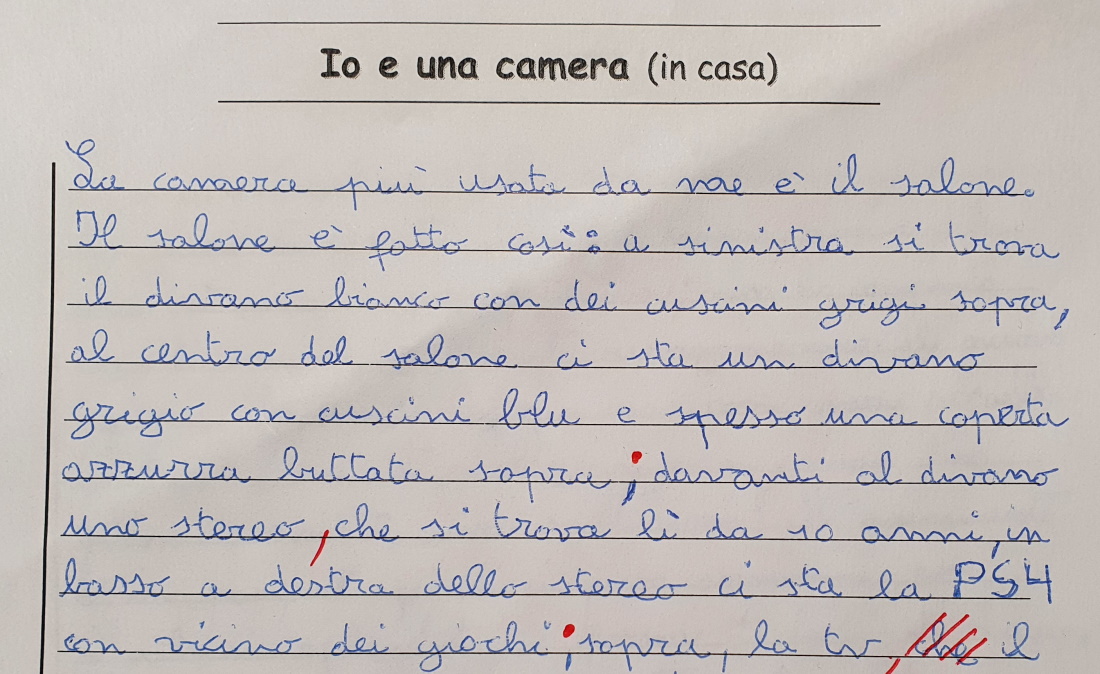 Io e una camera (in casa)
La camera più usata da me è il salone.
Il salone è fatto così: a sinistra si trova
il divano bianco con dei cuscini grigi sopra,
al centro del salone ci sta un divano
grigio con cuscini blu e spesso una coperta
azzurra buttata sopra; davanti al divano
uno stereo, che si trova lì da 10 anni, in
basso a destra dello stereo ci sta la PS4
con vicino dei giochi; sopra, la tv, che il